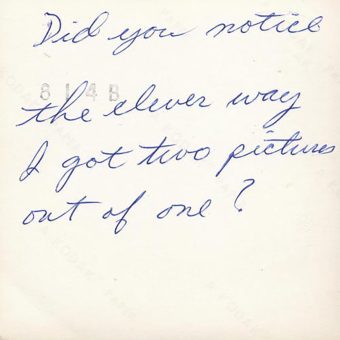 Did you notice
8148
the clever way
I got two pictures
out of one?